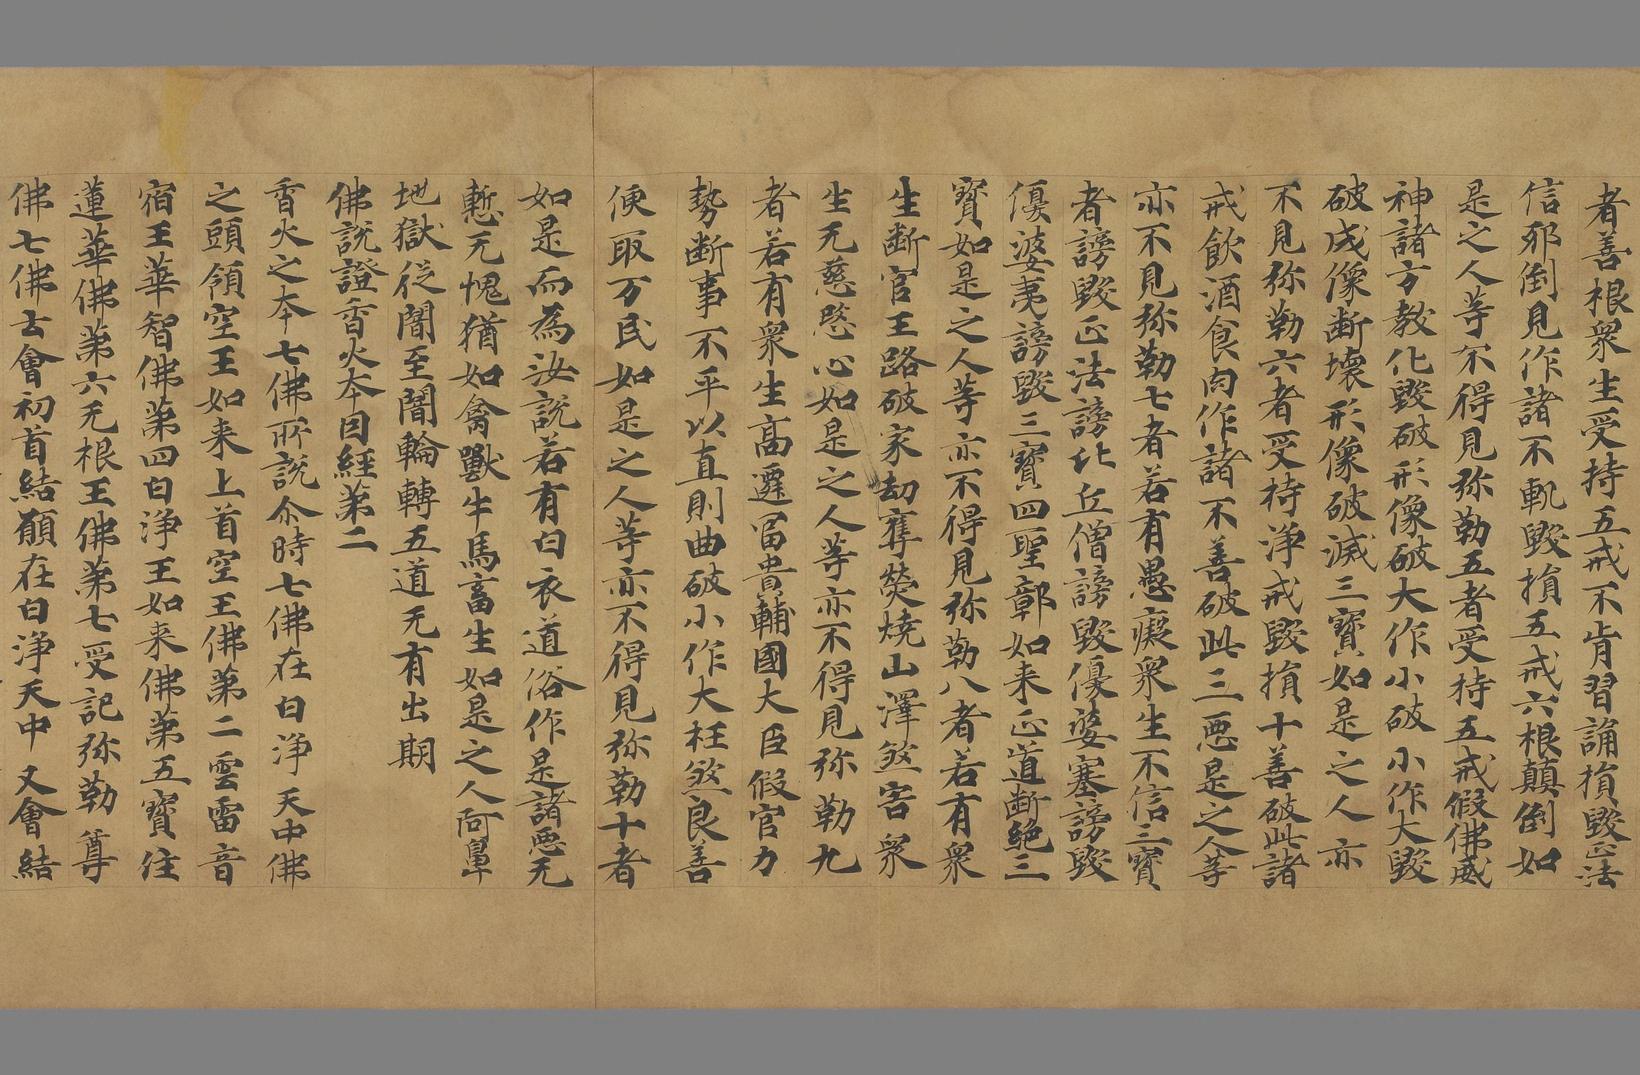 者善根衆生受持五戒不肯習誦損毀正法
信邪倒見作諸不軌毀損五戒六根顛倒如
是之人等不得見弥勒五者受持五戒假佛威
神諸方教化毀破形像破大作小破小作大毀
破成像斷壞形像破滅三寶如是之人亦
不見弥勒六者受持淨戒毀損十善破此諸
戒飲酒食肉作諸不善破此三惡是之人等
亦不見弥勒七者若有愚癡衆生不信三寶
者謗毀正法謗比丘僧謗毀優婆塞謗毀
優婆夷謗毀三寶四聖鄣如来正道斷絶三
寶如是之人等亦不得見弥勒八者若有衆
生斷官王路破家劫奪燓燒山澤煞害衆
生无慈愍心如是之人等亦不得見弥勒九
者若有衆生高遷冨貴輔國大臣假官力
勢断事不平以直則曲破小作大枉煞良善
便取万民如是之人等亦不得見弥勒十者
如是而為汝說若有白衣道俗作是諸惡无
慙无愧猶如禽獸牛馬畜生如是之人阿鼻
地獄從闇至闇輪轉五道无有出期
佛說證香火本因經第二
香火之本七佛所說尒時七佛在白淨天中佛
之頭領空王如来上首空王佛第二雲雷音
宿王華智佛第四白淨王如来佛第五寶住
蓮華佛第六无根王佛第七受記弥勒尊
佛七佛士會初首結願在白淨天中又會結